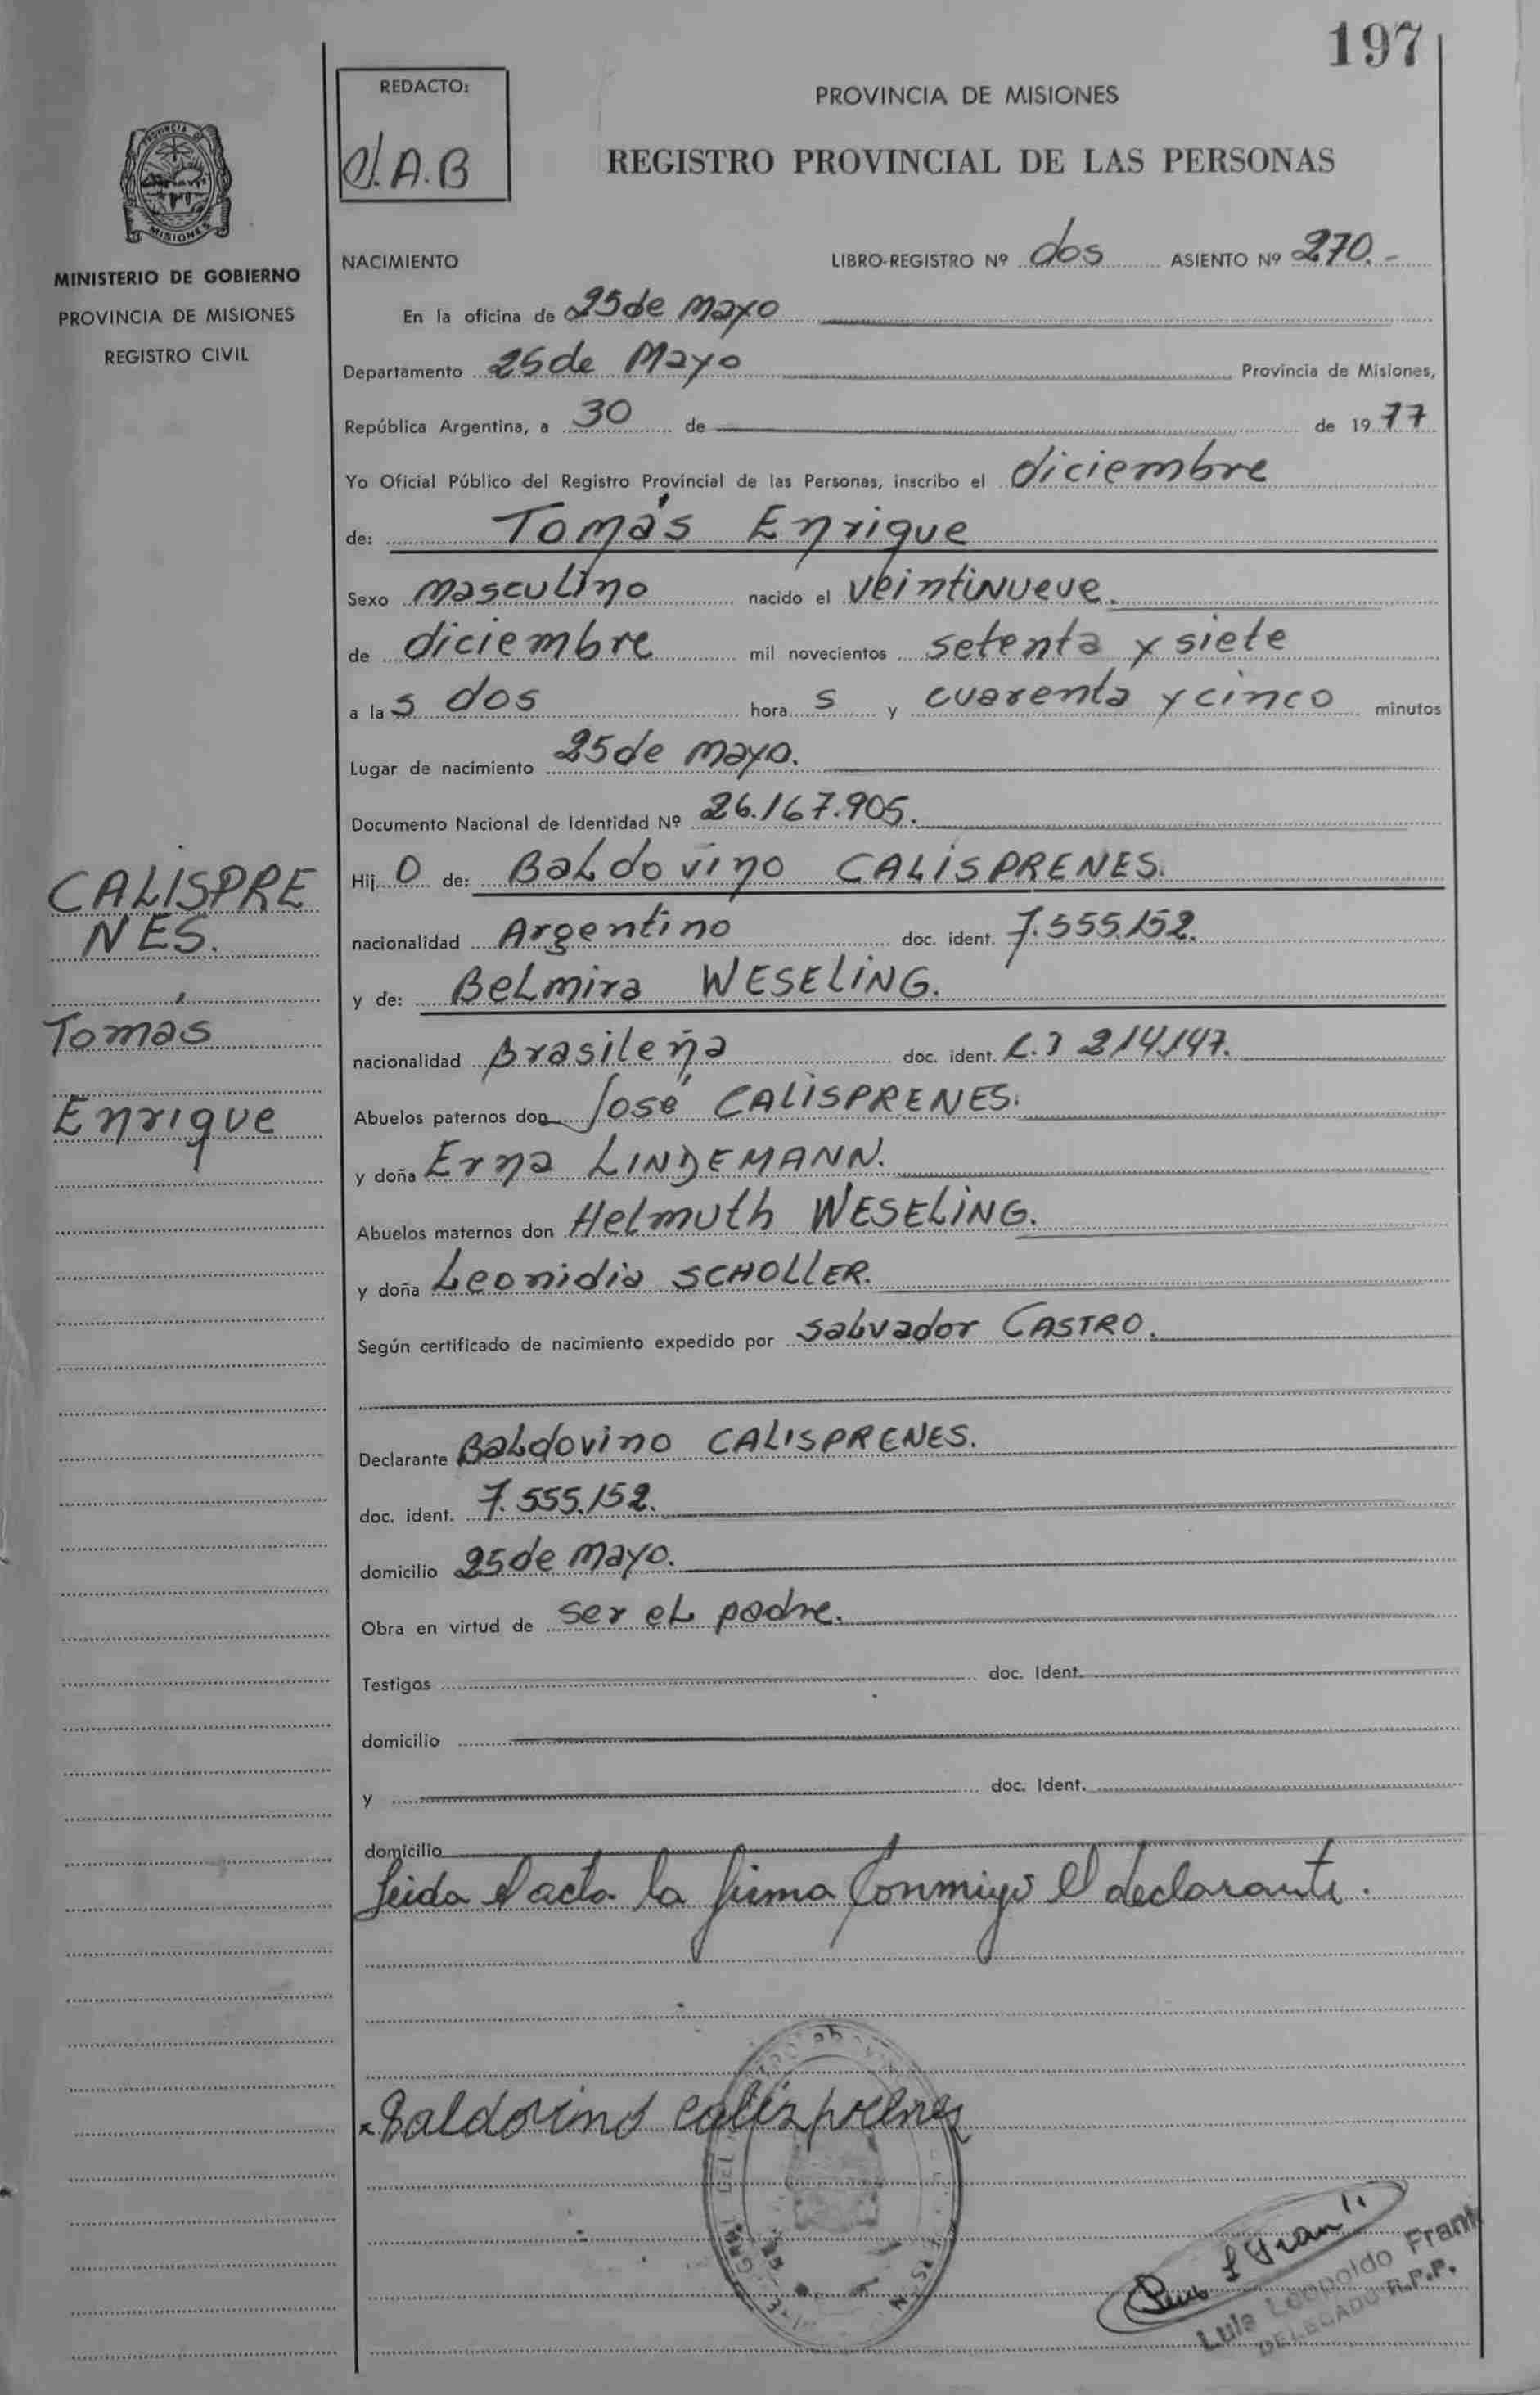 197
REDACTO:
A.B
PROVINCIA DE MISIONES
REGISTRO PROVINCIAL DE LAS PERSONAS
PROVINCIA DE
MISIONES
MINISTERIO DE GOBIERNO
PROVINCIA DE MISIONES
REGISTRO CIVIL
NACIMIENTO LIBRO-REGISTRO Nº dos ASIENTO Nº 270.-
En la oficina de 25 de Mayo
Departamento 25 de Mayo Provincia de Misiones,
República Argentina, a 30 de de 1977
Yo Oficial Público del Registro Provincial de las Personas, inscribo el diciembre
de: Tomás Enrique
Sexo masculino nacido el veintinueve.
de diciembre mil novecientos setenta y siete
a las dos horas y cuarenta y cinco minutos
Lugar de nacimiento 25 de mayo.
Documento Nacional de Identidad Nº 26.167.905.
CALISPRE
NES.
Tomás
Enrique
Hijo de: BaLdovino CALISPRENES.
nacionalidad Argentino doc. ident. 7.555.152.
y de: BeLmira WESELING.
nacionalidad Brasileña doc. ident. 214.147.
Abuelos paternos don José CALISPRENES.
y doña Erna LINDEMANN.
Abuelos maternos don Helmuth WESELING.
y doña Leonidia SCHOLLER.
Según certificado de nacimiento expedido por Salvador CASTRO.
Declarante BaLdovino CALISPRENES.
doc. ident. 7.555.152.
domicilio 25 de Mayo.
Obra en virtud de ser el padre.
Testigos doc. Ident.
domicilio
y doc. Ident.
domicilio
Leida el acta la firma Conmigo el declarante.
Baldovino
Luis Leopoldo Frank
DELEGADO R.P.P.